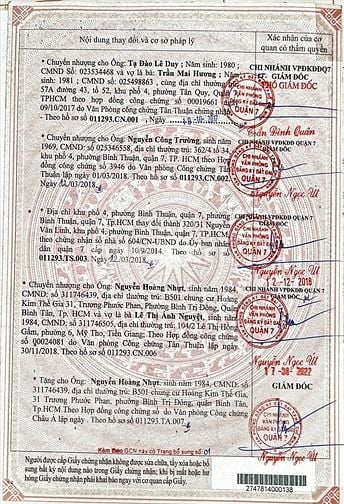 Nội dung thay đổi và cơ sở pháp lý
Xác nhận của cơ quan có thẩm quyền
* Chuyển nhượng cho Ông: Tạ Đào Lê Duy; Năm sinh: 1980;
CMND Số: 023534468 và vợ là bà: Trần Mai Hương; Năm
sinh: 1981; CMND Số: 025498863; cùng địa chỉ thường trú:
57A đường 43, tổ 52, khu phố 4, phường Tân Quy, Quận
TPHCM theo hợp đồng công chứng số 00019661
09/10/2017 do Văn phòng Công chứng Tân Thuận lập.
- Theo hồ sơ số 011293.CN.001
CHI NHÁNH VPĐKĐĐQ7
GIÁM ĐỐC
PHÓ GIÁM ĐỐC
CHI NHÁNH
VĂN PHÒNG
ĐĂNG KÝ ĐẤT ĐAI
QUẬN 7
Trần Đình Quân
* Chuyển nhượng cho Ông: Nguyễn Công Trường, sinh năm
1969, CMND số: 025346558, địa chỉ thường trú: 362/4 tổ 34
khu phố 4, phường Bình Thuận, quận 7, TP. HCM theo Hợp
đồng công chứng số 3946 do Văn phòng Công chứng Tân
Thuận lập ngày 01/03/2018. Theo hồ sơ số 011293.CN.002.
Ngày 12/03/2018
CHI NHÁNH VPĐKĐĐ QUẬN 7
GIÁM ĐỐC
CHI NHÁNH
VĂN PHÒNG
ĐĂNG KÝ ĐẤT ĐAI
QUẬN 7
Nguyễn Ngọc Út
* Địa chỉ khu phố 4, phường Bình Thuận, quận 7, phường
Bình Thuận, quận 7, Tp.HCM thay đổi thành 320/31 Nguyễn
Văn Linh, khu phố 4, phường Bình Thuận, quận 7, Tp.HCM
theo chứng nhận số nhà số 604/CN-UBND do Ủy ban nhân
dân quận 7 cấp ngày 10/9/2014. Theo hồ sơ số
011293.TS.003. Ngày 12/03/2018
CHI NHÁNH VPĐKĐĐ QUẬN 7
GIÁM ĐỐC
CHI NHÁNH
VĂN PHÒNG
ĐĂNG KÝ ĐẤT ĐAI
QUẬN 7
Nguyễn Ngọc Út
* Chuyển nhượng cho Ông: Nguyễn Hoàng Nhựt, sinh năm 1984,
CMND: số: 311746439, địa chỉ thường trú: B501 chung cư Hoàng
Kim Thế Gia 31, Trương Phước Phan, phường Bình Trị Đông, quận
Bình Tân, Tp. HCM và bà là Lê Thị Ánh Nguyệt, sinh năm
1984, CMND: số: 311746505, địa chỉ thường trú: 104/2 Lê Thị Hồng
Gấm, phường 6, Mỹ Tho, Tiền Giang; Theo hợp đồng công chứng
số 00024081 do Văn phòng Công chứng Tân Thuận lập ngày
30/11/2018. Theo hồ sơ số 011293.CN.006
12 -12- 2018
CHI NHÁNH VPĐKĐĐ QUẬN 7
GIÁM ĐỐC
CHI NHÁNH
VĂN PHÒNG
ĐĂNG KÝ ĐẤT ĐAI
QUẬN 7
Nguyễn Ngọc Út
* Tặng cho Ông: Nguyễn Hoàng Nhựt, sinh năm 1984, CMND: số:
311746439, địa chỉ thường trú: B501 chung cư Hoàng Kim Thế Gia,
31 Trương Phước Phan, phường Bình Trị Đông, quận Bình Tân,
Tp.HCM Theo Hợp đồng công chứng số do Văn phòng Công chứng
Châu Á lập ngày Theo hồ sơ số 011293.TA.007
GIÁM ĐỐC
CHI NHÁNH
VĂN PHÒNG
QUẬN 7
Kèm theo GCN này có Trang bổ sung số 01
Người được cấp Giấy chứng nhận không được sửa chữa, tẩy xóa hoặc bổ
sung bất kỳ nội dung nào trong Giấy chứng nhận; khi bị mất hoặc hư
hỏng Giấy chứng nhận phải khai báo ngay với cơ quan cấp Giấy.
2747814000138